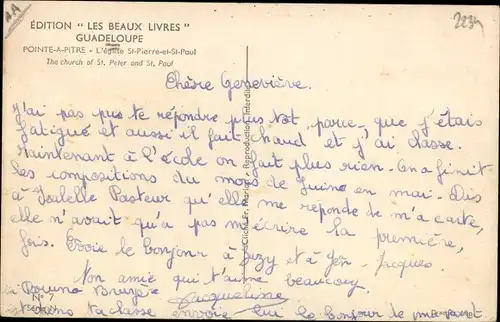 ÉDITION "LES BEAUX LIVRES"
GUADELOUPE
POINTE-A-PITRE - L'église St-Pierre-et-St-Paul
The church of St. Peter and St. Paul
2234
Chère Geneviève.
J'ai pas pus te répondre plus tôt, parce que j'étais
fatigué et aussi il fait chaud et j'ai classe.
Maintenant à l'école on fait plus rien. On a finit
les compositions du mois de Juin en mai. Dis
à Isabelle Pasteur qu'elle me réponde de m'a carte,
elle n'avait qu'a pas m'écrire la première,
fois. Envoie le bonjour à Suzy et à Jean-Jacques.
Ton amie qui t'aime beaucoup
Jacqueline
N° 7
si Bruno
est dans ta classe envoie lui le bonjour de ma part
Reproduction Interdite